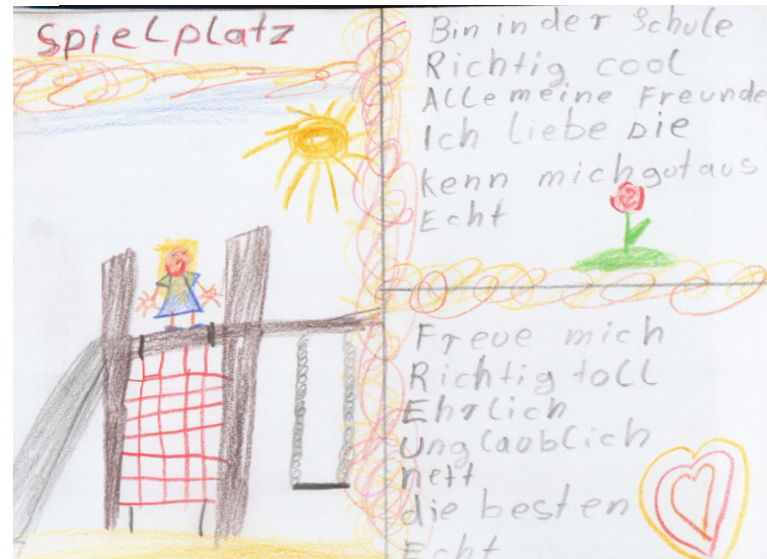 Spielplatz
Bin in der Schule
Richtig cool
Alle meine Freunde
Ich liebe Die
kenn mich gut aus
Echt
Freue mich
Richtig toll
Ehrlich
Unglaublich
nett
die besten
Echt